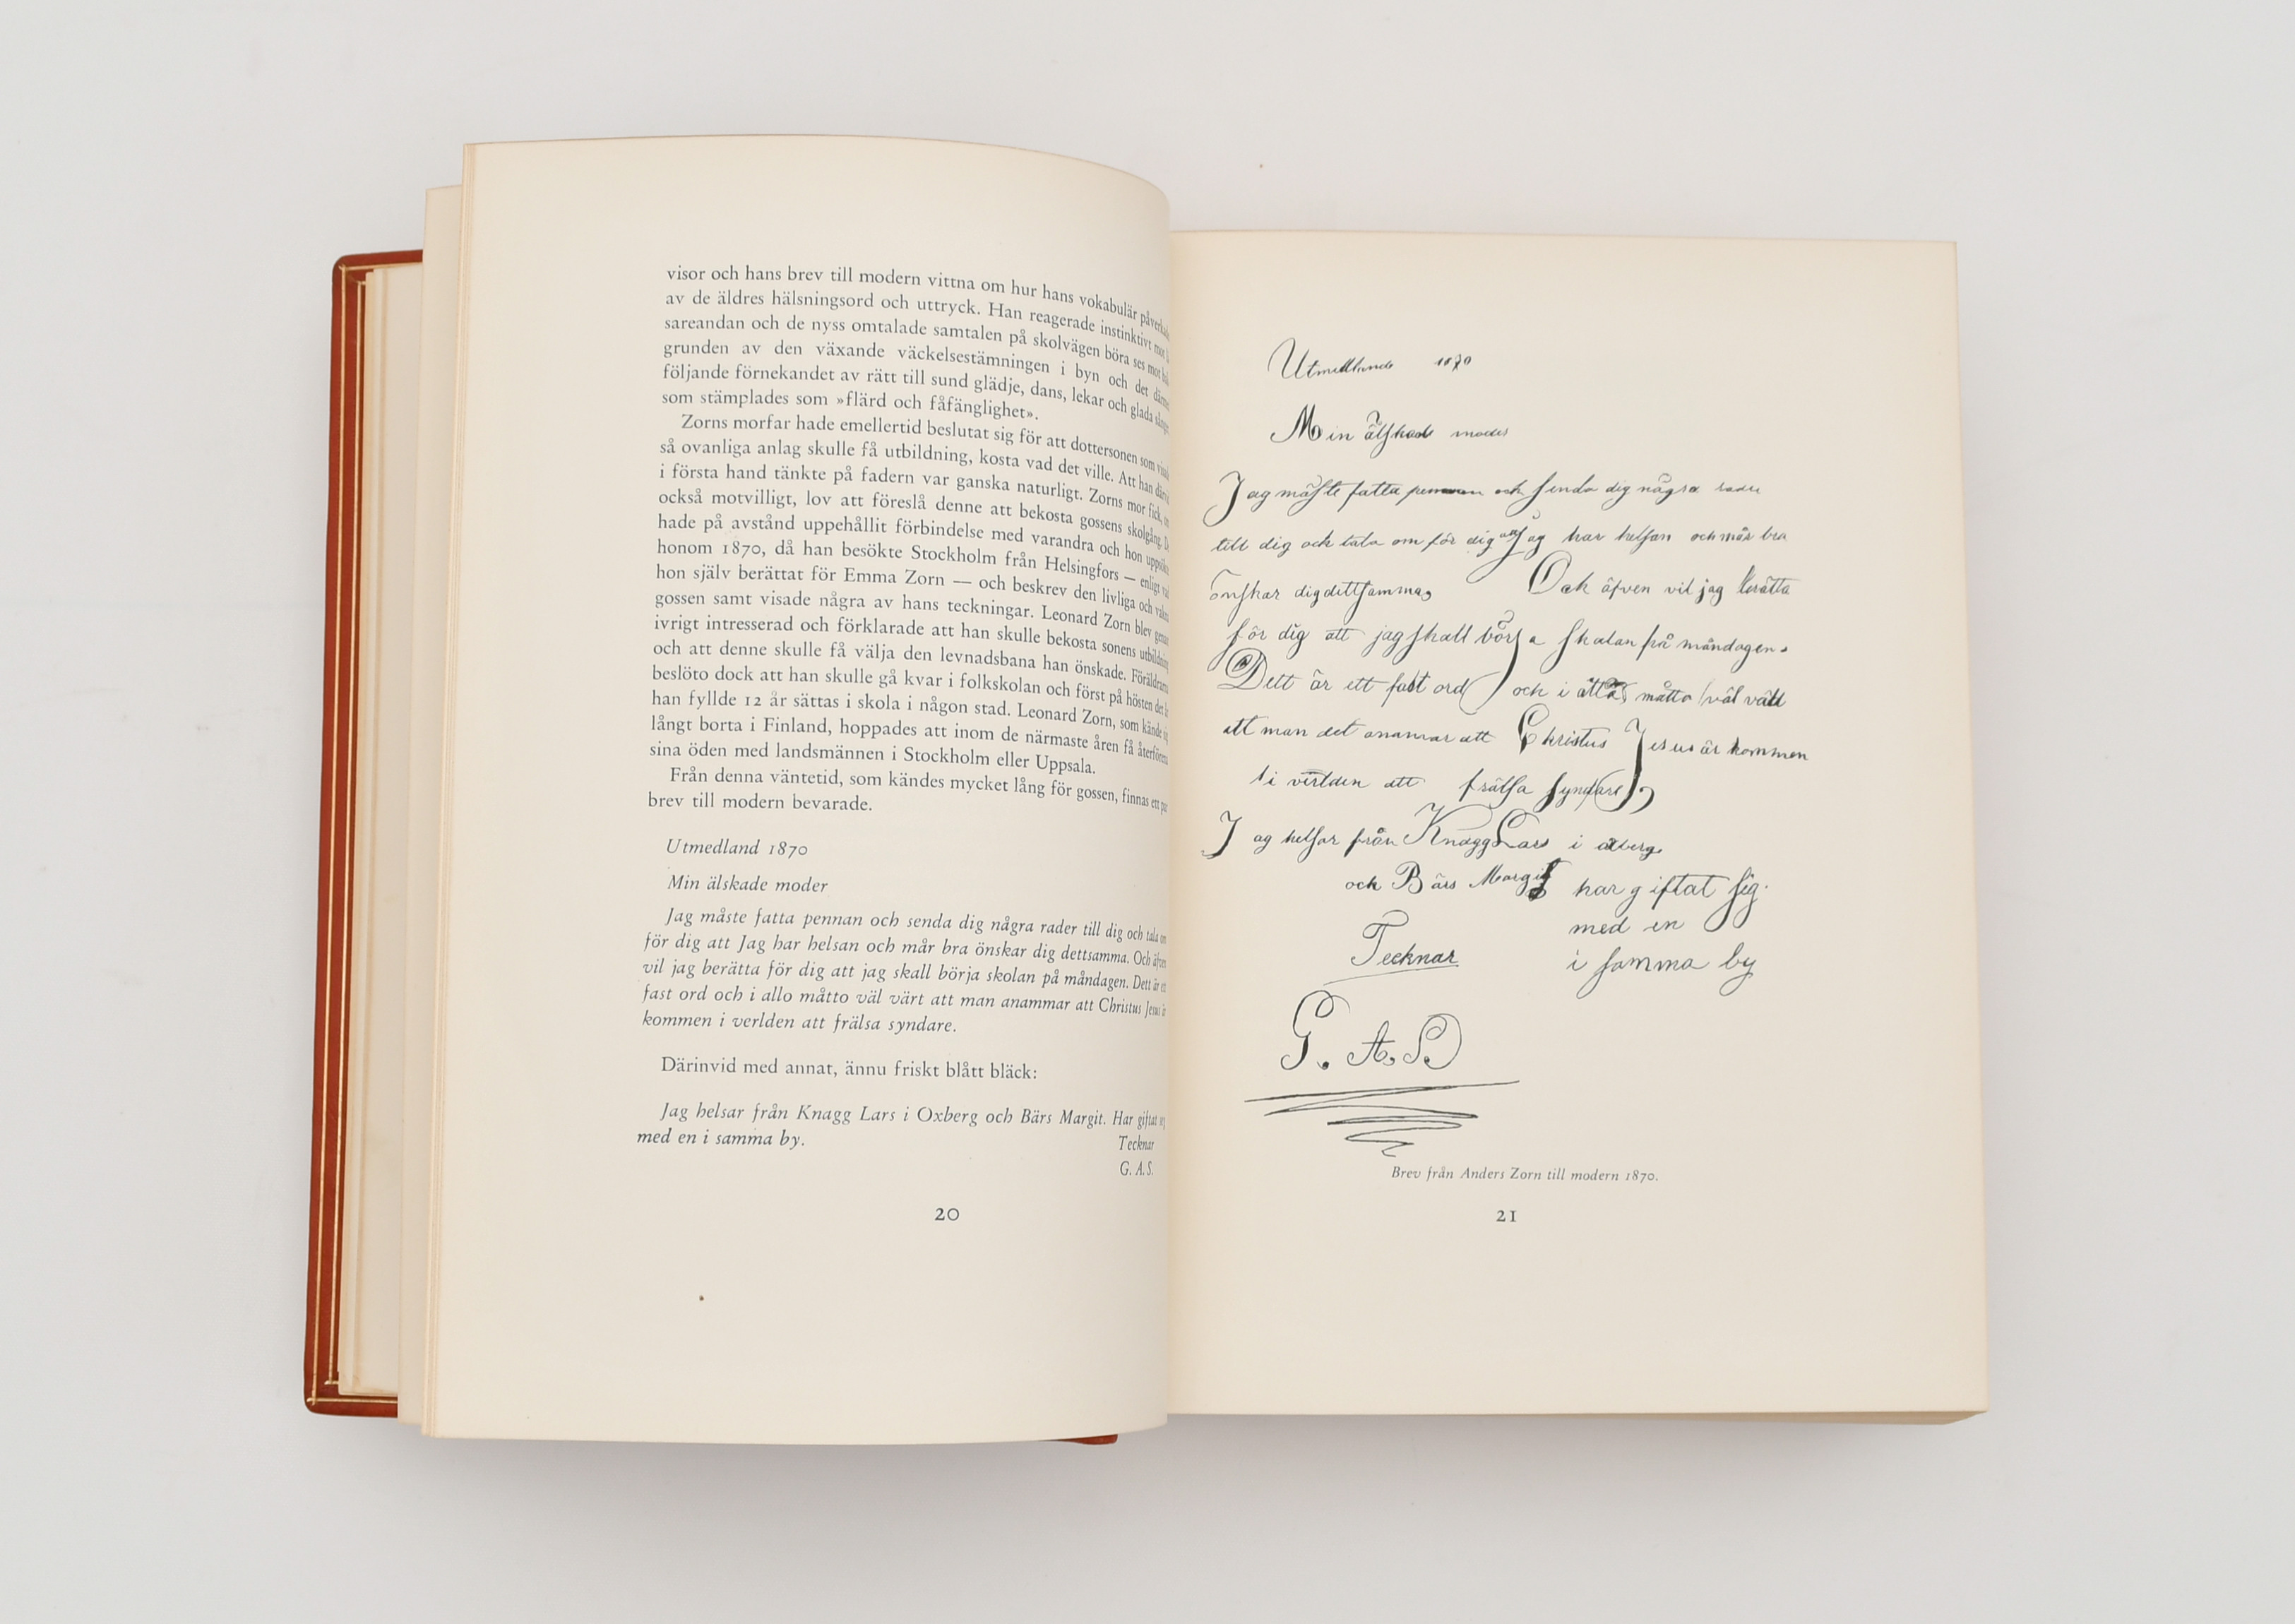 visor och hans brev till modern vittna om hur hans vokabulär
av de äldres hälsningsord och uttryck. Han reagerade instinktivt mot
sareandan och de nyss omtalade samtalen på skolvägen böra ses mot
grunden av den växande väckelsestämningen i byn och det
följande förnekandet av rätt till sund glädje, dans, lekar och glada
som stämplades som »flärd och fåfänglighet».
Zorns morfar hade emellertid beslutat sig för att dottersonen som
så ovanliga anlag skulle få utbildning, kosta vad det ville. Att han
i första hand tänkte på fadern var ganska naturligt. Zorns mor fick,
också motvilligt, lov att föreslå denne att bekosta gossens skolgång.
hade på avstånd uppehållit förbindelse med varandra och hon
honom 1870, då han besökte Stockholm från Helsingfors — enligt
hon själv berättat för Emma Zorn — och beskrev den livliga och
gossen samt visade några av hans teckningar. Leonard Zorn blev
ivrigt intresserad och förklarade att han skulle bekosta sonens
och att denne skulle få välja den levnadsbana han önskade. Föräldrarna
beslöto dock att han skulle gå kvar i folkskolan och först på hösten det
han fyllde 12 år sättas i skola i någon stad. Leonard Zorn, som kände
långt borta i Finland, hoppades att inom de närmaste åren få
sina öden med landsmännen i Stockholm eller Uppsala.
Från denna väntetid, som kändes mycket lång för gossen, finnas ett par
brev till modern bevarade.
Utmedland 1870
Min älskade moder
Jag måste fatta pennan och senda dig några rader till dig och tala om
för dig att Jag har helsan och mår bra önskar dig dettsamma. Och äfven
vil jag berätta för dig att jag skall börja skolan på måndagen. Dett är ett
fast ord och i allo måtto väl värt att man anammar att Christus Jesus är
kommen i verlden att frälsa syndare.
Därinvid med annat, ännu friskt blått bläck:
Jag helsar från Knagg Lars i Oxberg och Bärs Margit. Har giftat
med en i samma by.
Tecknar
G. A. S.
20
Utmedland 1870
Min älskade moder
Jag måste fatta pennan och senda dig några rader
till dig och tala om för dig att Jag har helsan och mår bra
önskar dig dittsamma,
Och äfven vil jag berätta
för dig att jag skall börja skolan på måndagen.
Dett är ett fast ord och i måtto väl
att man det anammar att Christus Jesus är kommen
i verlden att frälsa syndare,
Jag helsar från Knagg Lars i
och Bärs Margit har giftat sig.
med en
i samma by
Tecknar
G. A. S
Brev från Anders Zorn till modern 1870.
21